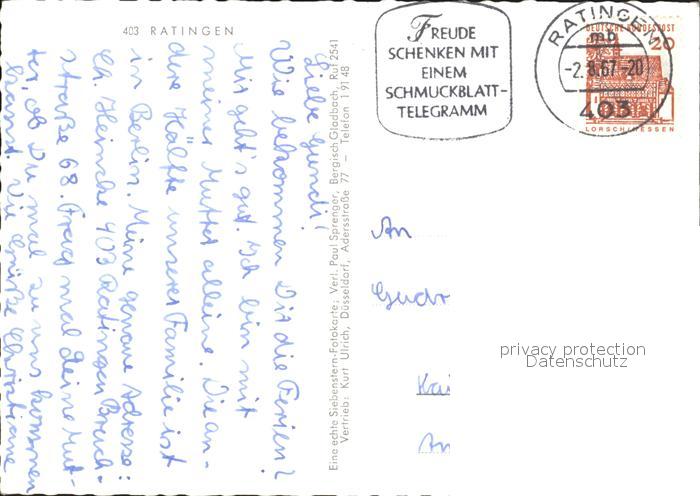 403 RATINGEN
Liebe Gundi!
Wie bekommen Dir die Ferien?
Mir geht's gut. Ich bin mit
meiner Mutter alleine. Die an-
dere Hälfte unserer Familie ist
in Berlin. Meine genaue Adresse:
Ch. Heincke 403 Ratingen Bruch-
straße 68. Frag mal deine Mut-
ter, ob Du mal zu uns kommen
kannst. Viele Grüße Christiane
Eine echte Siebenstern-Fotokarte; Verl. Paul Sprenger, Bergisch Gladbach, Ruf 2541
Vertrieb: Kurt Ulrich, Düsseldorf, Adersstraße 77 — Telefon 1 91 48
FREUDE
SCHENKEN MIT
EINEM
SCHMUCKBLATT-
TELEGRAMM
RATINGEN
mb
-2.8.67-20
403
DEUTSCHE BUNDESPOST
20
LORSCH/HESSEN
An
Gudr
Kai
An
privacy protection
Datenschutz